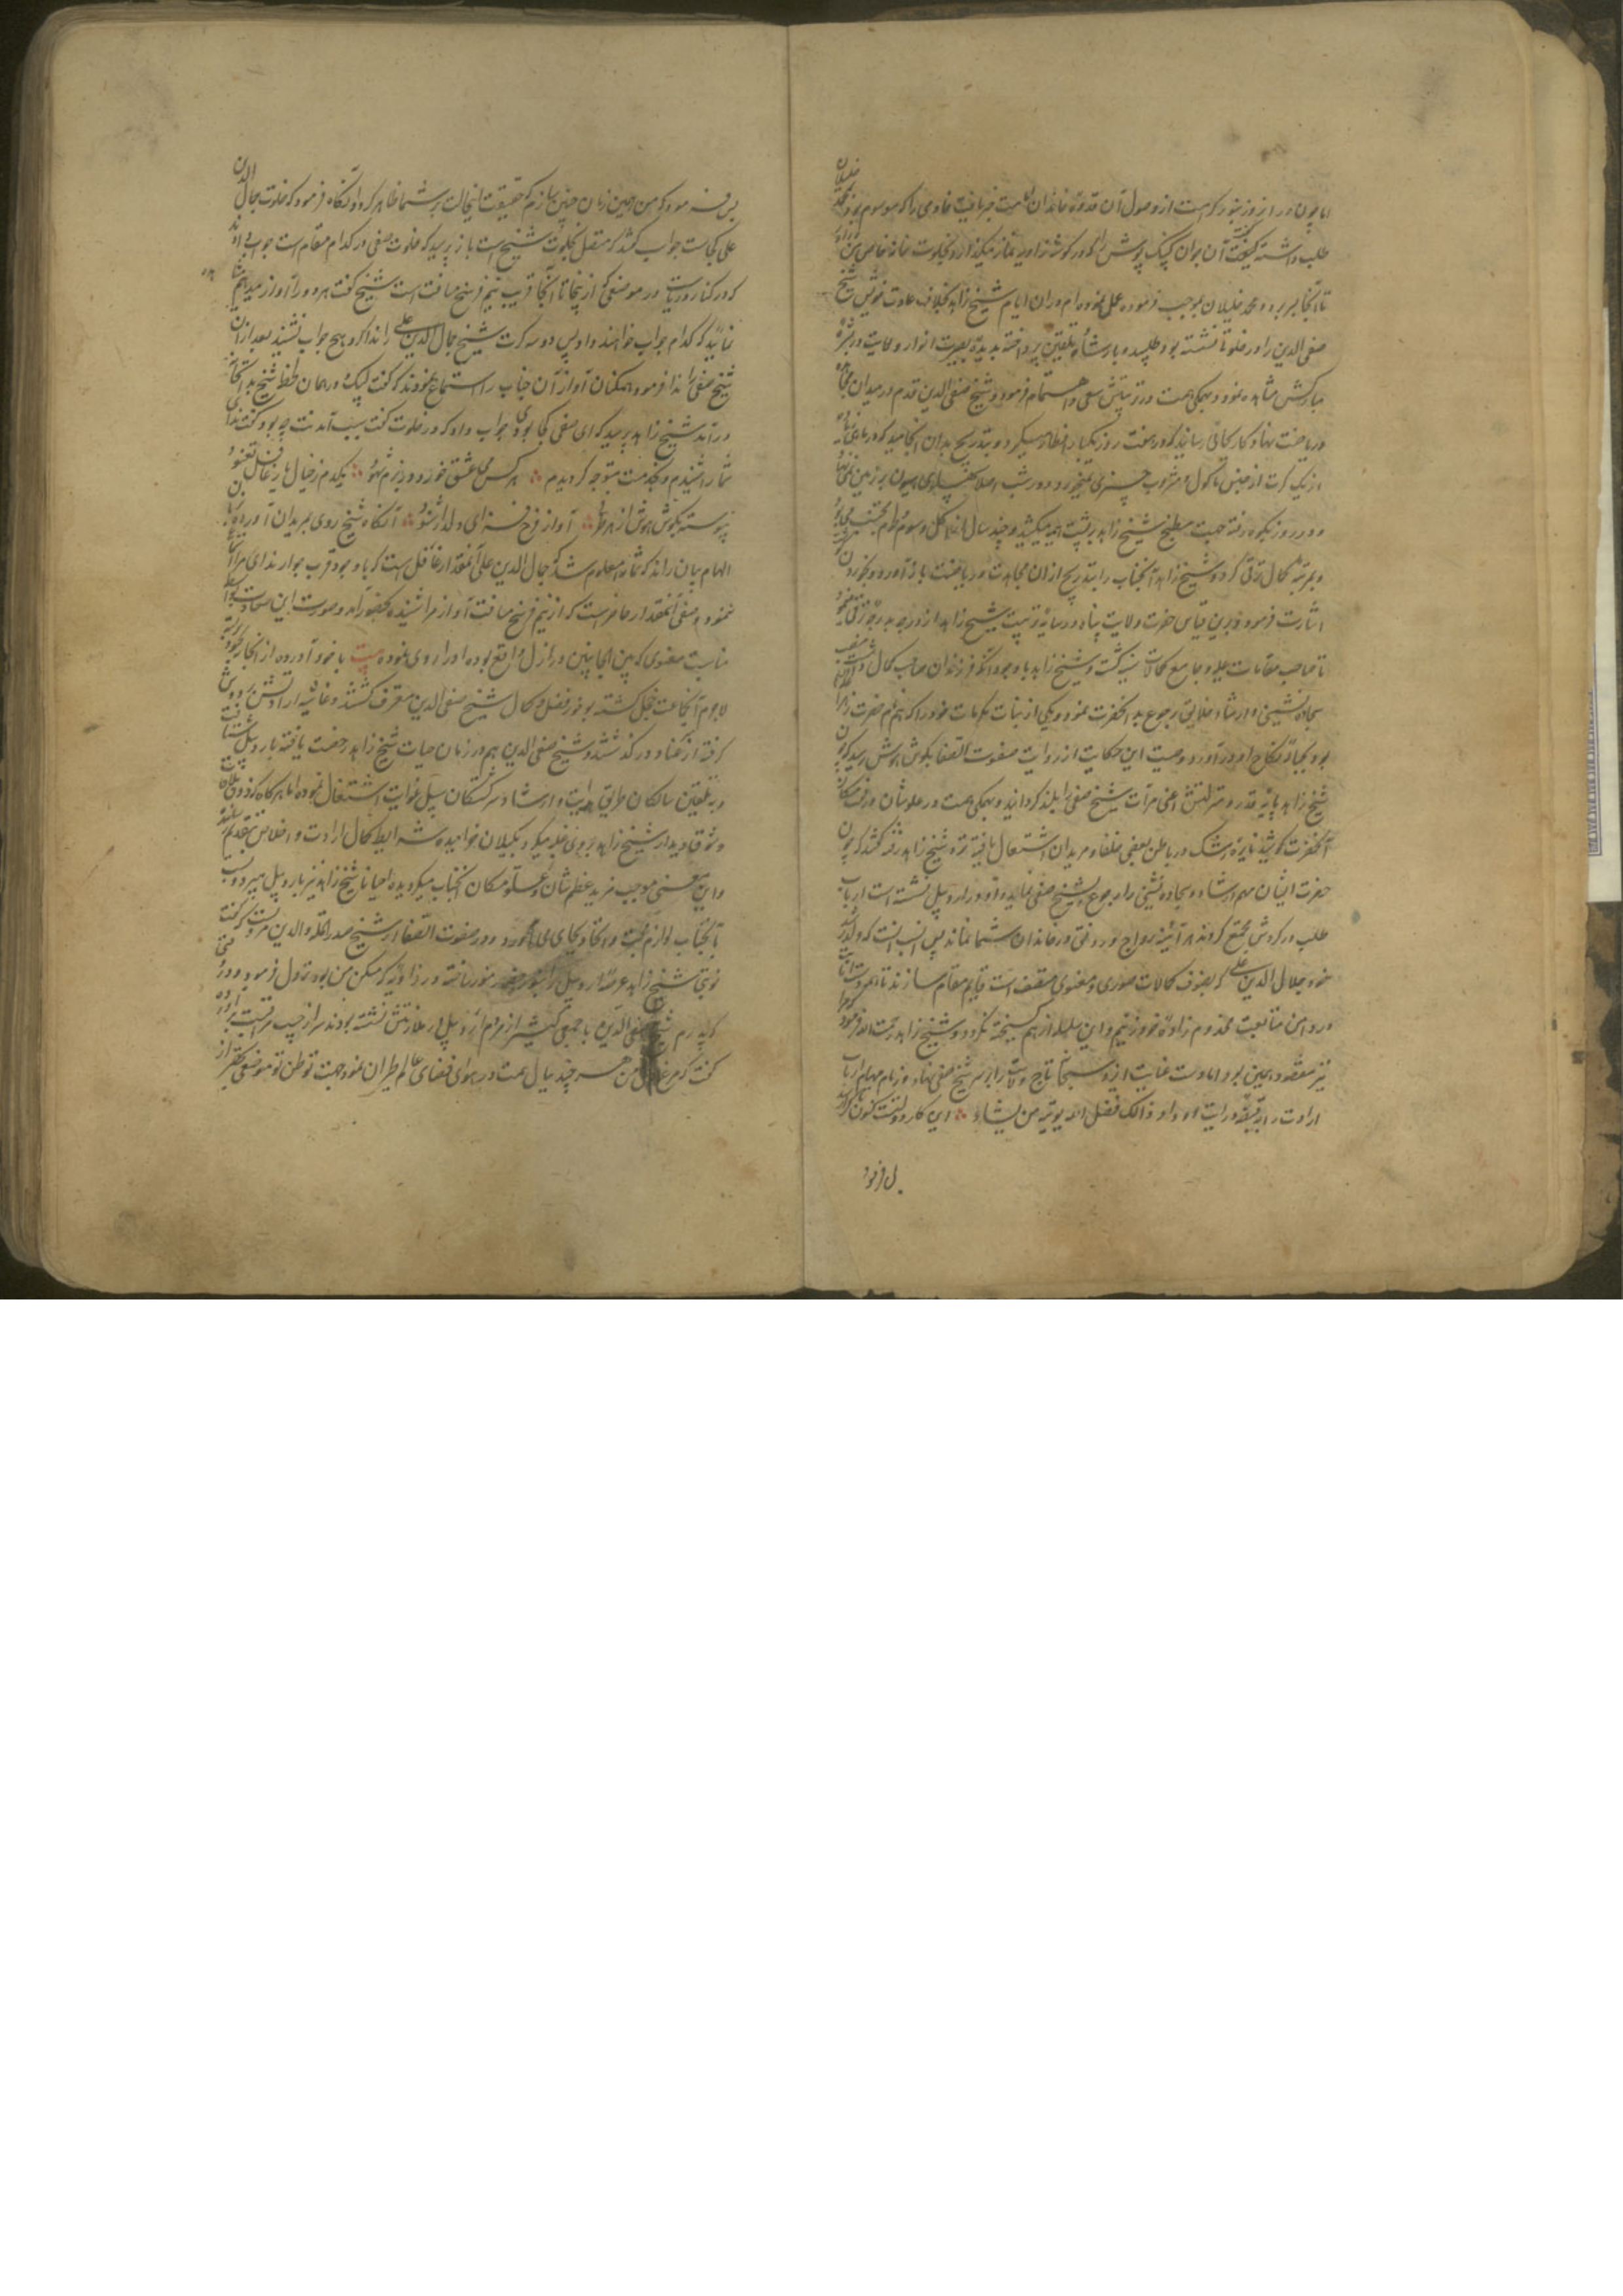 اما چون در این روز بنور کرامت از وصول آن قدوه خاندان امامت خبر یافت خادمی را که موسوم بود بمحمد خلیلان
طلب داشته گفت آن جوان کپنک پوش را که در گوشه زاویه نماز میگذارد بخلوت خانه خاص من
تا آنجا ببر و محمد خلیلان بموجب فرموده عمل نموده ام در ان ایام شیخ زاهد بخلاف عادت خویش شیخ
صفی الدین را در خلوتی نشسته بود طلبیده بارشاد و تلقین پرداخته بدیده بصیرت انوار ولایت در بشره
مبارکش مشاهده نمود و بهمگی همت در تربیتش سعی و اهتمام فرمود و شیخ صفی الدین قدم در میدان
و ریاضت نهاد و کار بجائی رسانید که در هفت روز یکبار افطار میکرد و بتدریج بدان انجامید که در ماهی
از یک کرت از جنس ماکول و مشروب چیزی نمیخورد و در شب اصلا پهلوی همیون بر زمین نمی نهاد
و در روز بکوه رفته جهت مطبخ شیخ زاهد بر پشت هیمه میکشید و چند سال
و بمرتبه کمال ترقی کرد و شیخ زاهد آنجناب را بتدریج از ان مجاهدت و ریاضت باز آورد و بخوردن
اشارت فرمود و برین قیاس حضرت ولایت پناه در سایه تربیت شیخ زاهد از درجه بدرجه ترقی
تا صاحب مقامات علیه و جامع کمالات سنیه گشت و شیخ زاهد با وجود آنکه فرزندان صاحب کمال داشت
سجاده نشینی و ارشاد خلایق رجوع به آنحضرت نمود و یکی از بنات مکرمات خود را که هم نام حضرت زهرا
بود بحباله نکاح او در آورد و صحت این حکایت از روایت صفوت الصفا بگوش هوش رسید که چون
شیخ زاهد پایه قدر و منزلتش اعنی مرات شیخ صفی را بلند گردانید و بهمگی همت در علو شان و رفعت مکان
آنحضرت کوشید نایره رشک در باطن بعضی خلفا و مریدان اشتعال یافته نزد شیخ زاهد رفته گفتند که چون
حضرت ایشان مهم ارشاد و سجاده نشینی را رجوع بشیخ صفی نماید و او در اردبیل نشسته است ارباب
طلب در گردش مجتمع گردند هر آینه رواج و رونقی در خاندان شما نماند پس انسب آنست که ولد ارشد
خود جمال الدین علی که بصنوف کمالات صوری و معنوی متصف است قایم مقام سازند تا همه دست انابت
در دامن متابعت مخدوم زاده خود زنیم و این سلسله از هم گسیخته نگردد و شیخ زاهد رحمت الله فرمود که مرا
نیز مقصود همین بود اما دست عنایت ازلی سبحانی تاج ولایت را بر سر شیخ صفی نهاد و زمام مهام ارباب
ارادت را بقبضه درایت او داد ذالک فضل الله یوتیه من یشاء ؞ این کار دولت است کنون تا کرا رسد
پس فرمود
پس فرمود که من همین زمان چنین سازم که حقیقت اینحالت بر شما ظاهر گردد آنگاه فرمود که خلوت جمال الدین
علی کجاست جواب گفتند که متصل بخلوت شیخ است باز پرسید که خلوت صفی در کدام مقام است جواب دادند
که در کنار دریاست در موضعی که از ینجا تا آنجا قریب نیم فرسخ مسافت است شیخ گفت هر دو را آواز میدهم شما
نمائید که کدام جواب خواهند داد پس دو سه کرت شیخ جمال الدین علی را ندا کرد هیچ جواب نشنید بعد از ان
شیخ صفی را ندا فرمود همگنان آواز آن جناب را استماع نمودند که گفت لبیک و در همان لحظه شیخ بدانجا
در آمد شیخ زاهد پرسید که ای صفی کجا بودی جواب داد که در خلوت گفت سبب آمدنت چه بود گفت ندای
شما را شنیدم و بخدمت متوجه گردیدم ؞ هر کس می عشق خورد و در بزم شهود ؞ یکدم ز خیال یار غافل نغنود
پیوسته بگوش هوش از هر طرفی ؞ آواز فرح فزای دلدار شنود ؞ آنگاه شیخ روی بمریدان آورده
الهام بیان راند که شما را معلوم شد که جمال الدین علی آنمقدار غافل است که با وجود قرب جوار ندای مرا
نشنود و صفی آنمقدار حاضرست که از نیم فرسخ مسافت آواز مرا شنیده بحضور آمد و صورت این سعادت بواسطه
مناسبت معنوی که بین الجانبین در ازل واقع بوده او را روی نموده بیت با خود آورده از انجا نه بخود بربسته
لاجرم آنجماعت خجل گشته بوفور فضل و کمال شیخ صفی الدین معترف گشتند و غاشیه ارادتش بر دوش
گرفته از عناد در گذشتند و شیخ صفی الدین هم در زمان حیات شیخ زاهد رخصت یافته باردبیل شتافت
و بتلقین سالکان طریق هدایت و ارشاد سرگشتگان سبیل غوایت اشتغال نموده اما هر گاه که ذوق
و شوق دیدار شیخ زاهد بروی غلبه میکرد بگیلان خرامیده شرایط کمال ارادت و اخلاص بتقدیم میرسانید
و این معنی موجب مزید عظم شان و علو مکان آنجناب میگردیده احیانا شیخ زاهد نیز باردبیل میرود و نسبت
بآنجناب لوازم محبت و اتحاد بجای می آورد و در صفوت الصفا از شیخ صدر المله والدین مرویست که گفت
نوبتی شیخ زاهد عرصه اردبیل را بنور حضور منور ساخته در زاویه که مسکن من بود نزول فرمود و در وقتی
که پدرم شیخ صفی الدین با جمعی کثیر از مردم اردبیل در ملازمتش نشسته بودند سر از جیب مراقبت بر آورده
گفت که مرغ دل من هر چند ببال همت در هوای فضای عالم طیران نمود جهت توطن تو موضعی بهتر از